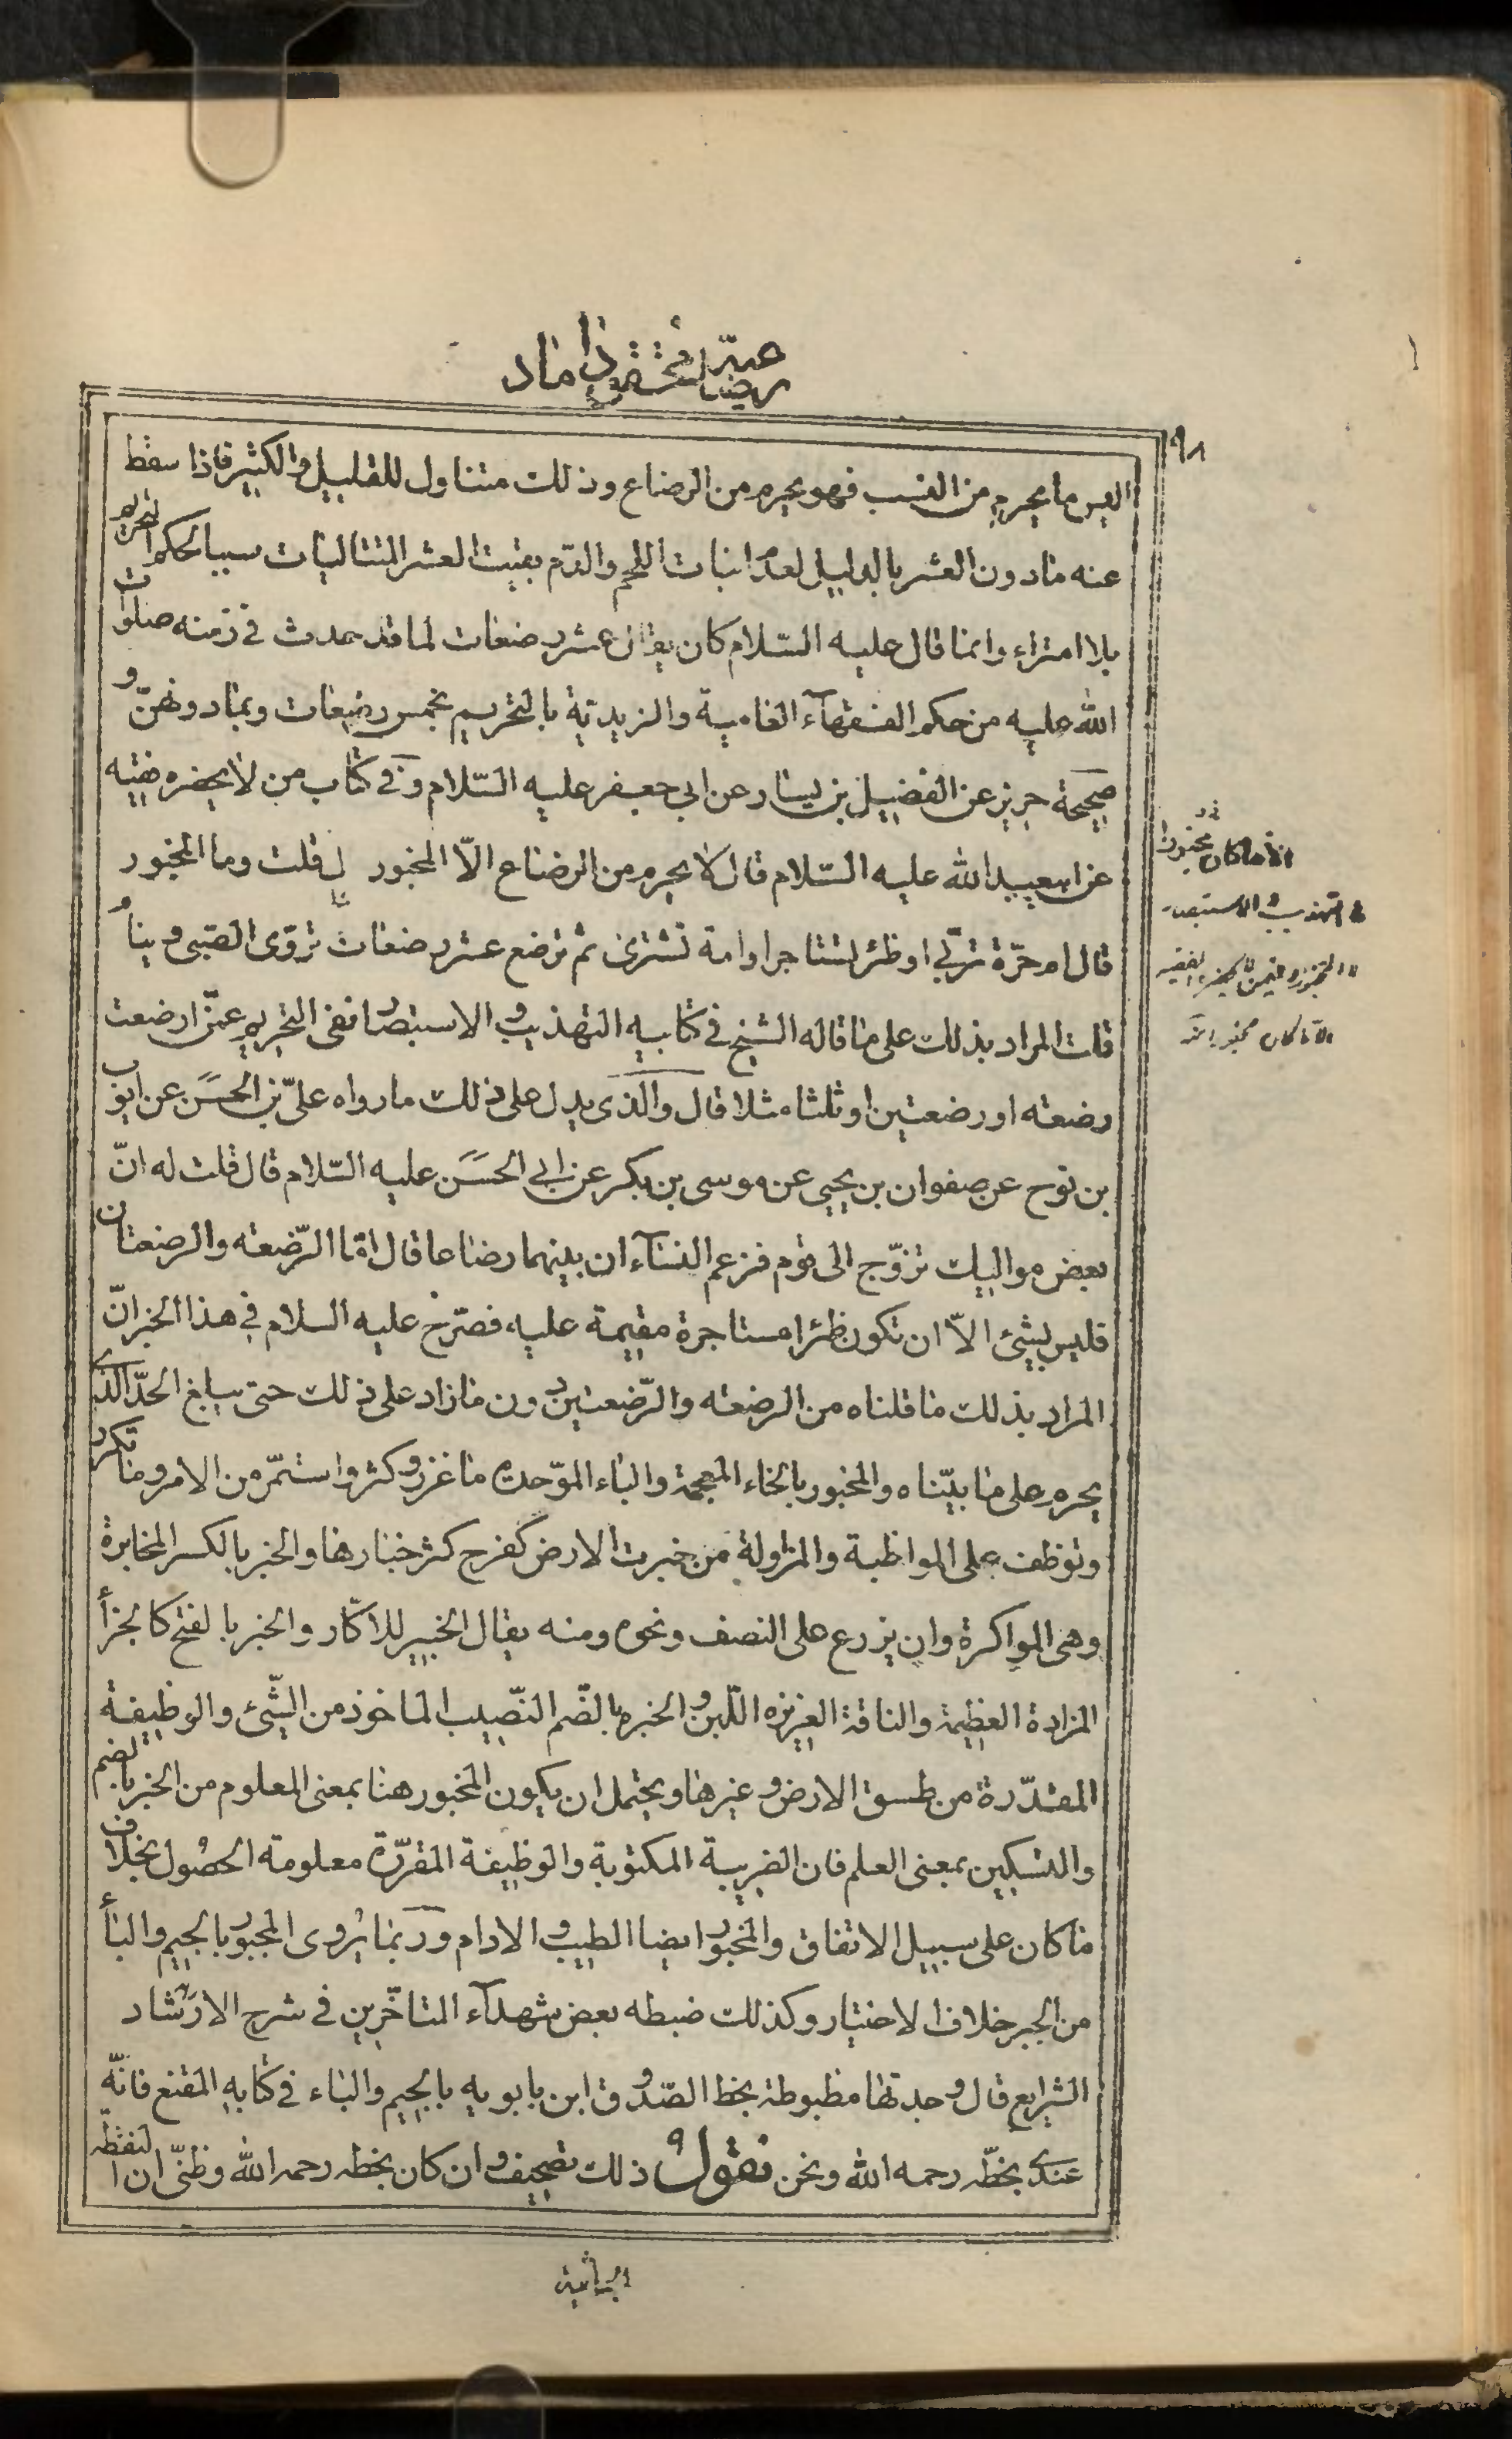 رضاعيّة المحقق داماد
٩٨
اليس ما يحرم من النسب فهو يحرم من الرضاع وذلك متناول للقليل والكثير فاذا سقط
عنه مادون العشر بالدليل لعدم انبات اللحم والدّم بقيت العشر المتتاليات سببا لحكم التحريم
بلا امتراء وانما قال عليه السّلام كان يقال عشر رضعات لما قد حدث في زمنه صلوات
الله عليه من حكم الفقهآء العامية والزيديّة بالتحريم بخمس رضعات وبمادونهنّ و
صحيحة حريز عن الفضيل بن يسار عن ابي جعفر عليه السّلام وفي كتاب من لا يحضره فقيه
عن ابيعبد الله عليه السّلام قال لا يحرم من الرضاع الاّ المخبور قلت وما المخبور
قال ام حرّة تربّي او ظئر تستاجر او امة تشترى ثم ترضع عشر رضعات تروّى الصّبى وينام
قلت المراد بذلك على ما قاله الشيخ في كتابيه التهذيب والاستبصار نفى التحريم عمّن ارضعت
رضعة او رضعتين او ثلثا مثلا قال والّذى يدل على ذلك مارواه علىّ بن الحسَن عن ايوب
بن نوح عن صفوان بن يحيى عن موسى بن بكر عن ابي الحسَن عليه السّلام قال قلت له انّ
بعض مواليك تزوّج الى قوم فزعم النسآء ان بينهما رضاعا قال امّا الرّضعه والرضعتان
فليس بشئ الاّ ان تكون ظئرا مستاجرة مقيمة عليه، فصرّح عليه السلام في هذا الخبر انّ
المراد بذلك ما قلناه من الرضعه والرّضعتين دون مازاد على ذلك حتى يبلغ الحدّ الذى
يحرم على ما بيّناه والمخبور بالخاء المعجمة والباء الموّحده ما غزر وكثر واستمّر من الامر وما تكرر
وتوظف على المواظبة والمزاولة من خبرت الارض كفرح كثر خبارها والخبر بالكسر المخابرة
وهى المواكرة وان يزرع على النصف ونحوه ومنه يقال الخبير للاكّار والخبر بالفتح كالجزأ
المزادة العظيمة والناقة الغزيزه اللّبن والخبره بالضّم النّصيب الماخوذ من الشّئ والوظيفة
المقدّرة من طسق الارض وغيرها ويحتمل ان يكون المخبور هنا بمعنى المعلوم من الخبر بالضم
والتسكين بمعنى العلم فان الضريبة المكتوبة والوظيفة المقرّرة معلومة الحصُول بخلاف
ما كان على سبيل الاتفاق والمخبور ايضا الطيب والادام وربما يُروى المجبور بالجيم والبأ
من الجبر خلاف الاختيار وكذلك ضبطه بعض شهدآء المتاخّرين في شرح الارشاد
الشرايع قال وجدتها مظبوطة بخط الصّدوق ابن بابويه بالجيم والباء في كتابه المقنع فانّه
عندى بخطّه رحمه الله ونحن نقول ذلك تصحيف وان كان بخطه رحمه الله وظنىّ ان النقطه
الا ما كان مخبورا
في التهذيب والاستبصار
الا ما كان مخبورا